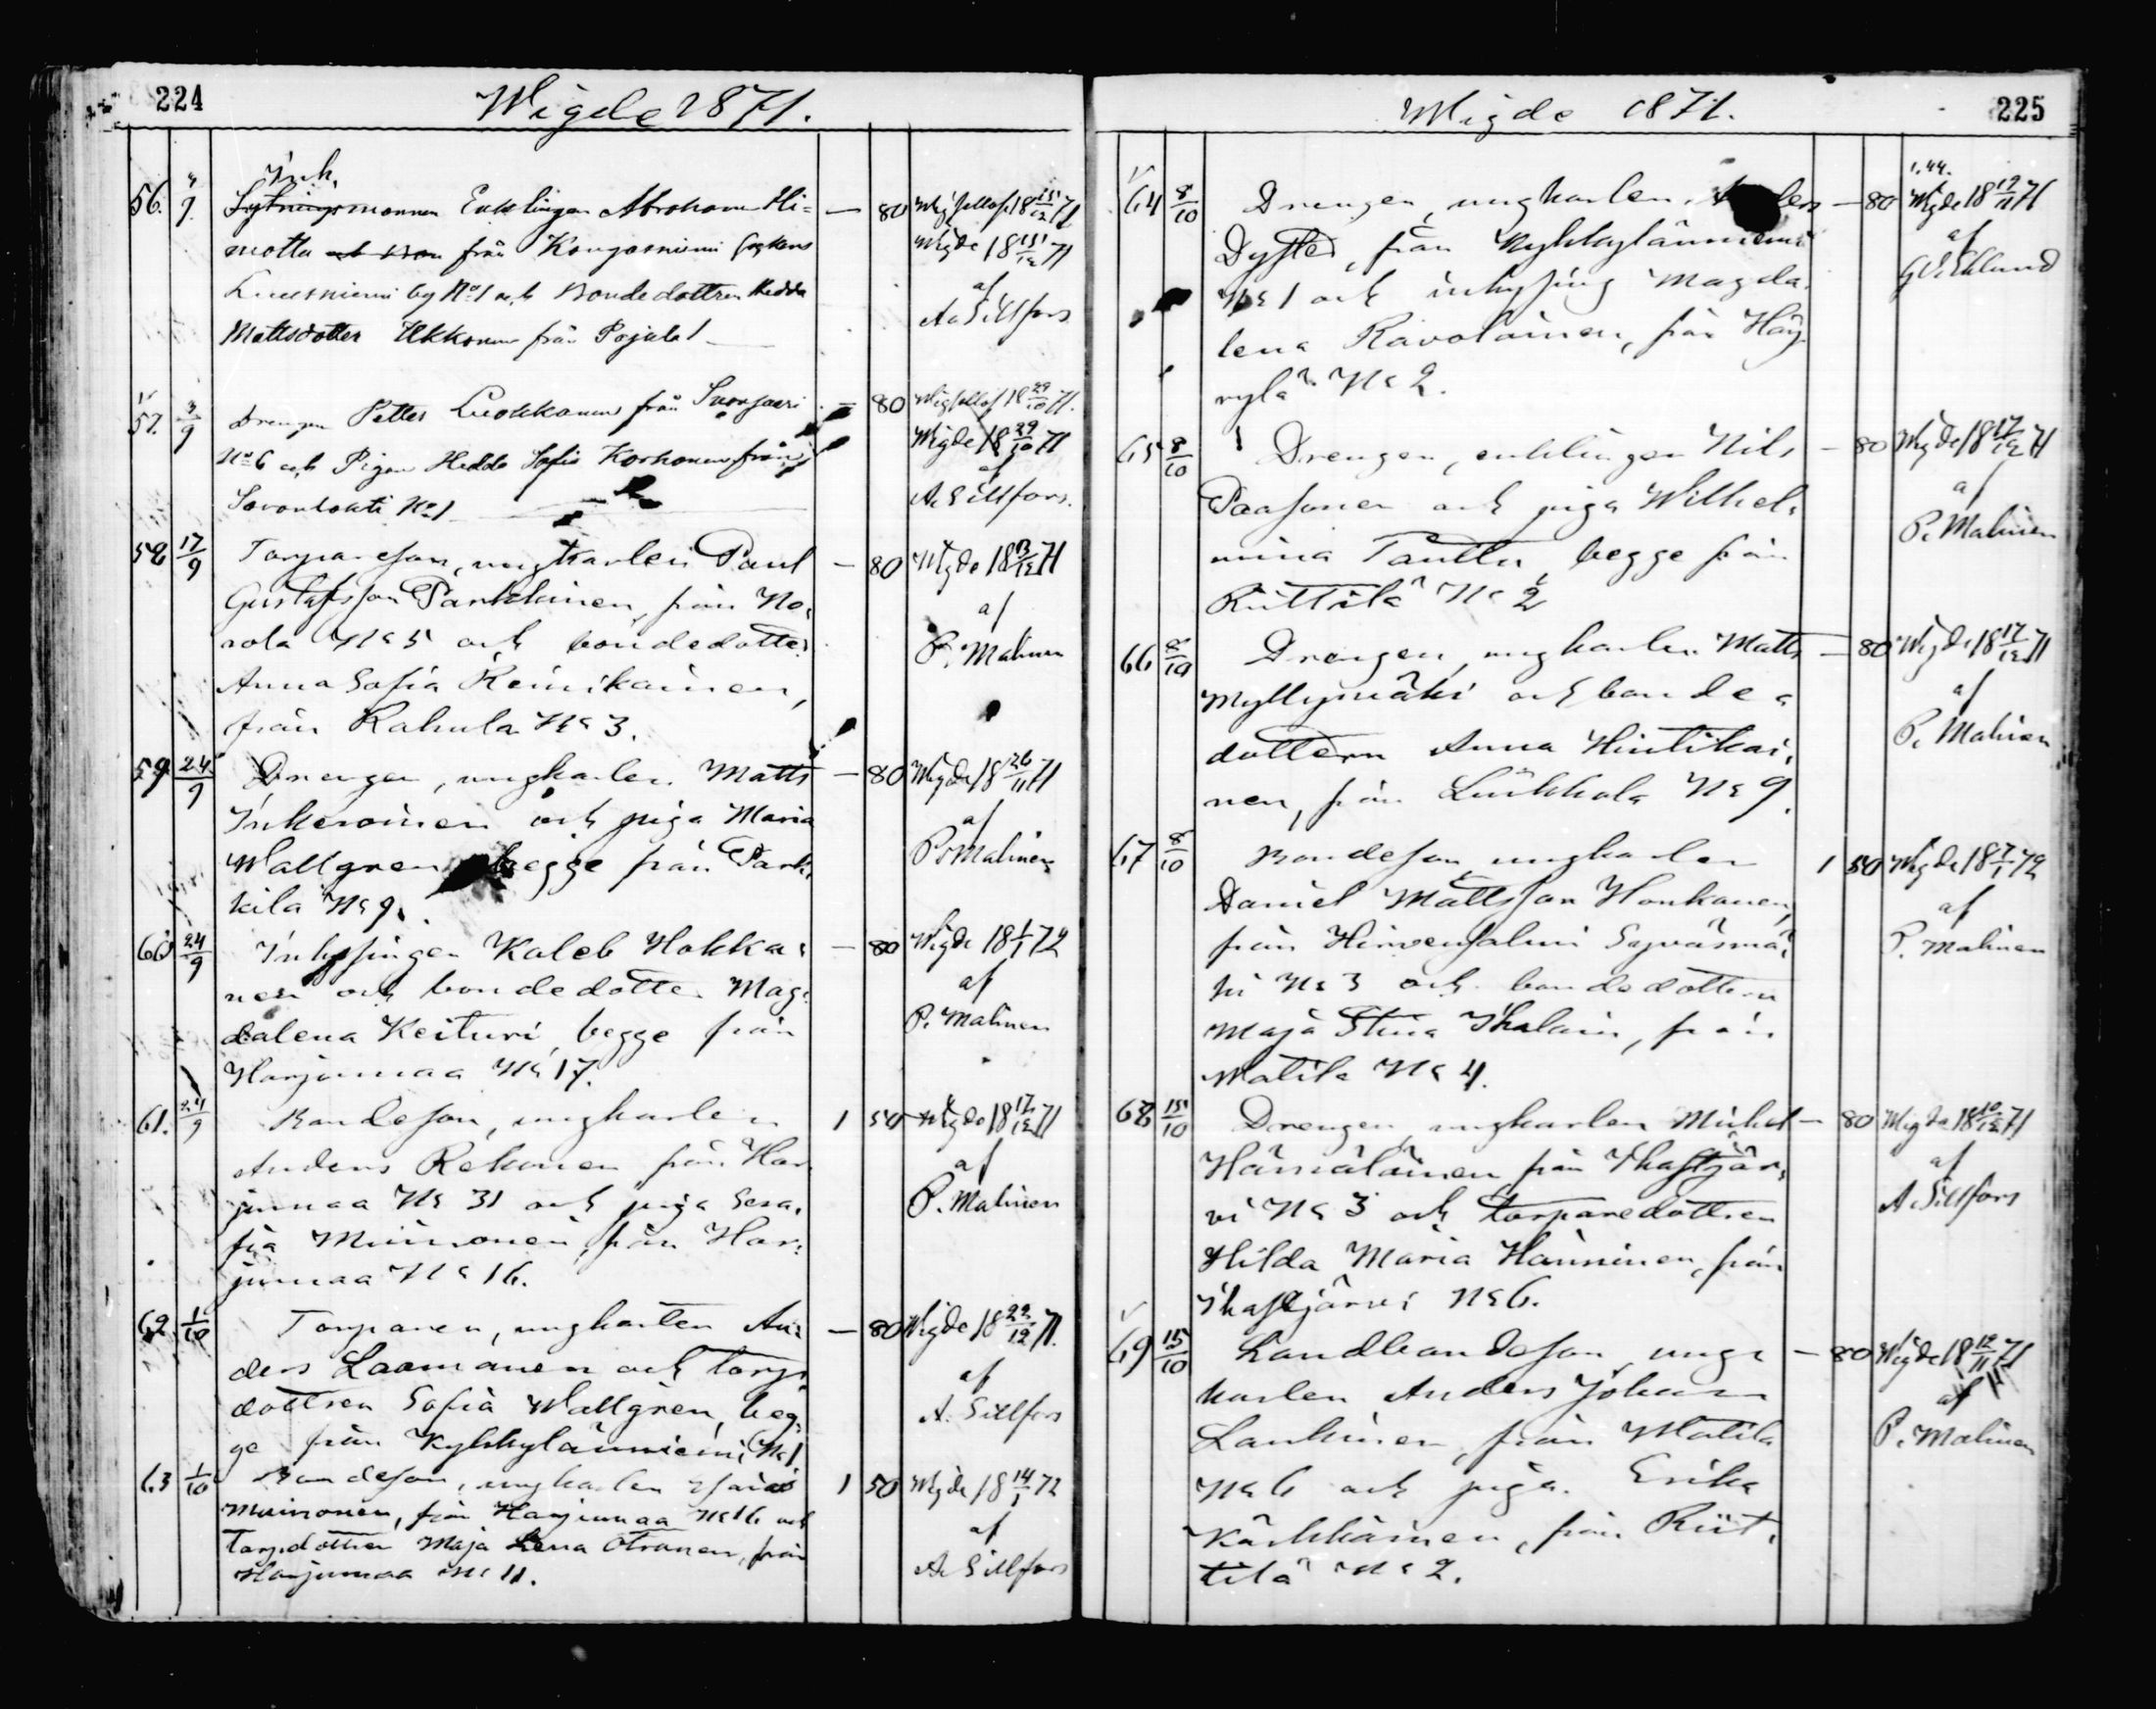 224
Wigde 1871.
56. 9
Inh.
Sytningsmannen Enklingen Abraham Hi=
motta och från Kangasniemi Sokens
Luusniemi by No 1 och Bondedottren Hedda
Mattsdotter Ukkonen från Pajula 1
— 80
Wigde 18 15/12 71
af
A. Sillfors
57. 3/9
Drengen Petter Luokkanen från
No 6 och Pigan Hedda Sofia Korhonen från
No 1
— 80
Wigde 18 29/10 71
af
A. Sillfors.
58 17/9
Torparesonen, ungkarlen Paul
Gustafsson Parkkinen, från No=
rola No 5 och bondedotter
Anna Sofia Reinikainen,
från Rahula No 3.
— 80
Wigde 18 13/12 71
af
P. Malinen
59 24/9
Drengen, ungkarlen Matts
Inkeroinen och piga Maria
Wallgren begge från Park=
kila No 9.
— 80
Wigde 18 26/11 71
af
P. Malinen
60 24/9
Inhysingen Kaleb Hokka=
nen och bondedotter Mag=
dalena Keituri, begge från
Harjumaa No 17.
— 80
Wigde 18 1/1 72
af
P. Malinen
61. 24/9
Bondeson, ungkarlen
Anders Rekonen från Har=
jumaa No 31 och piga Sera=
fia Muinonen, från Har=
jumaa No 16.
1 50
Wigde 18 17/12 71
af
P. Malinen
62 1/10
Torparen, ungkarlen An=
ders Laamanen och torp=
dottren Sofia Wallgren, beg=
ge från Kyhkylänniemi No 1.
— 80
Wigde 18 22/12 71.
af
A. Sillfors
63 1/10
Bondeson, ungkarlen Esaias
Muinonen, från Harjumaa No 16 och
Torpdottren Maja Lena Otranen, från
Harjumaa No 11.
1 50
Wigde 18 14/1 72
af
A. Sillfors
Wigde 1871.
225
64 8/10
Drengen, ungkarlen Anders
Dysted, från Kyhkylänniemi
No 1 och inhysing Magda=
lena Ravolainen, från Häy=
rylä No 2.
— 80
1,44.
Wigde 18 19/11 71
af
G. W. Eklund
65 8/10
Drengen, enklingen Nils
Paasonen och piga Wilhel=
mina Tanttu, begge från
Riittilä No 2
— 80
Wigde 18 17/12 71
af
P. Malinen
66 8/10
Drengen, ungkarlen Matts
Myllymäki och bonde=
dottern Anna Hintikai=
nen, från Liikkala No 9.
— 80
Wigde 18 17/12 71
af
P. Malinen
67 8/10
Bondeson, ungkarlen
Daniel Mattsson Honkanen,
från Hirvensalmi Syväsmä=
ki No 3 och bondedottern
Maja Stina Ihalain, från
Watila No 4.
1 50
Wigde 18 7/1 72
af
P. Malinen
68 15/10
Drengen, ungkarlen Mickel
Hämäläinen från Ihastjär=
vi No 3 och torparedottren
Hilda Maria Hänninen, från
Ihastjärvi No 6.
— 80
Wigde 18 10/12 71
af
A. Sillfors
69 15/10
Landbondeson, ung=
karlen Anders Johan
Lankinen, från Watila
No 6 och piga Erika
Kärkkäinen, från Riit=
tilä No 2.
— 80
Wigde 18 12/11 71
af
P. Malinen